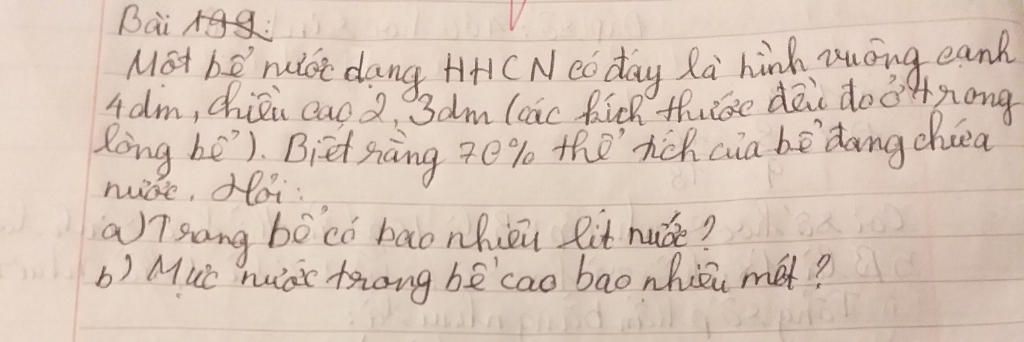 Bài 199:
Một bể nước dạng HHCN có đáy là hình vuông cạnh
4dm, chiều cao 2,3dm (các kích thước đều đo ở trong
lòng bể). Biết rằng 70% thể tích của bể đang chứa
nước. Hỏi:
a) Trong bể có bao nhiêu lít nước?
b) Mực nước trong bể cao bao nhiêu mét?